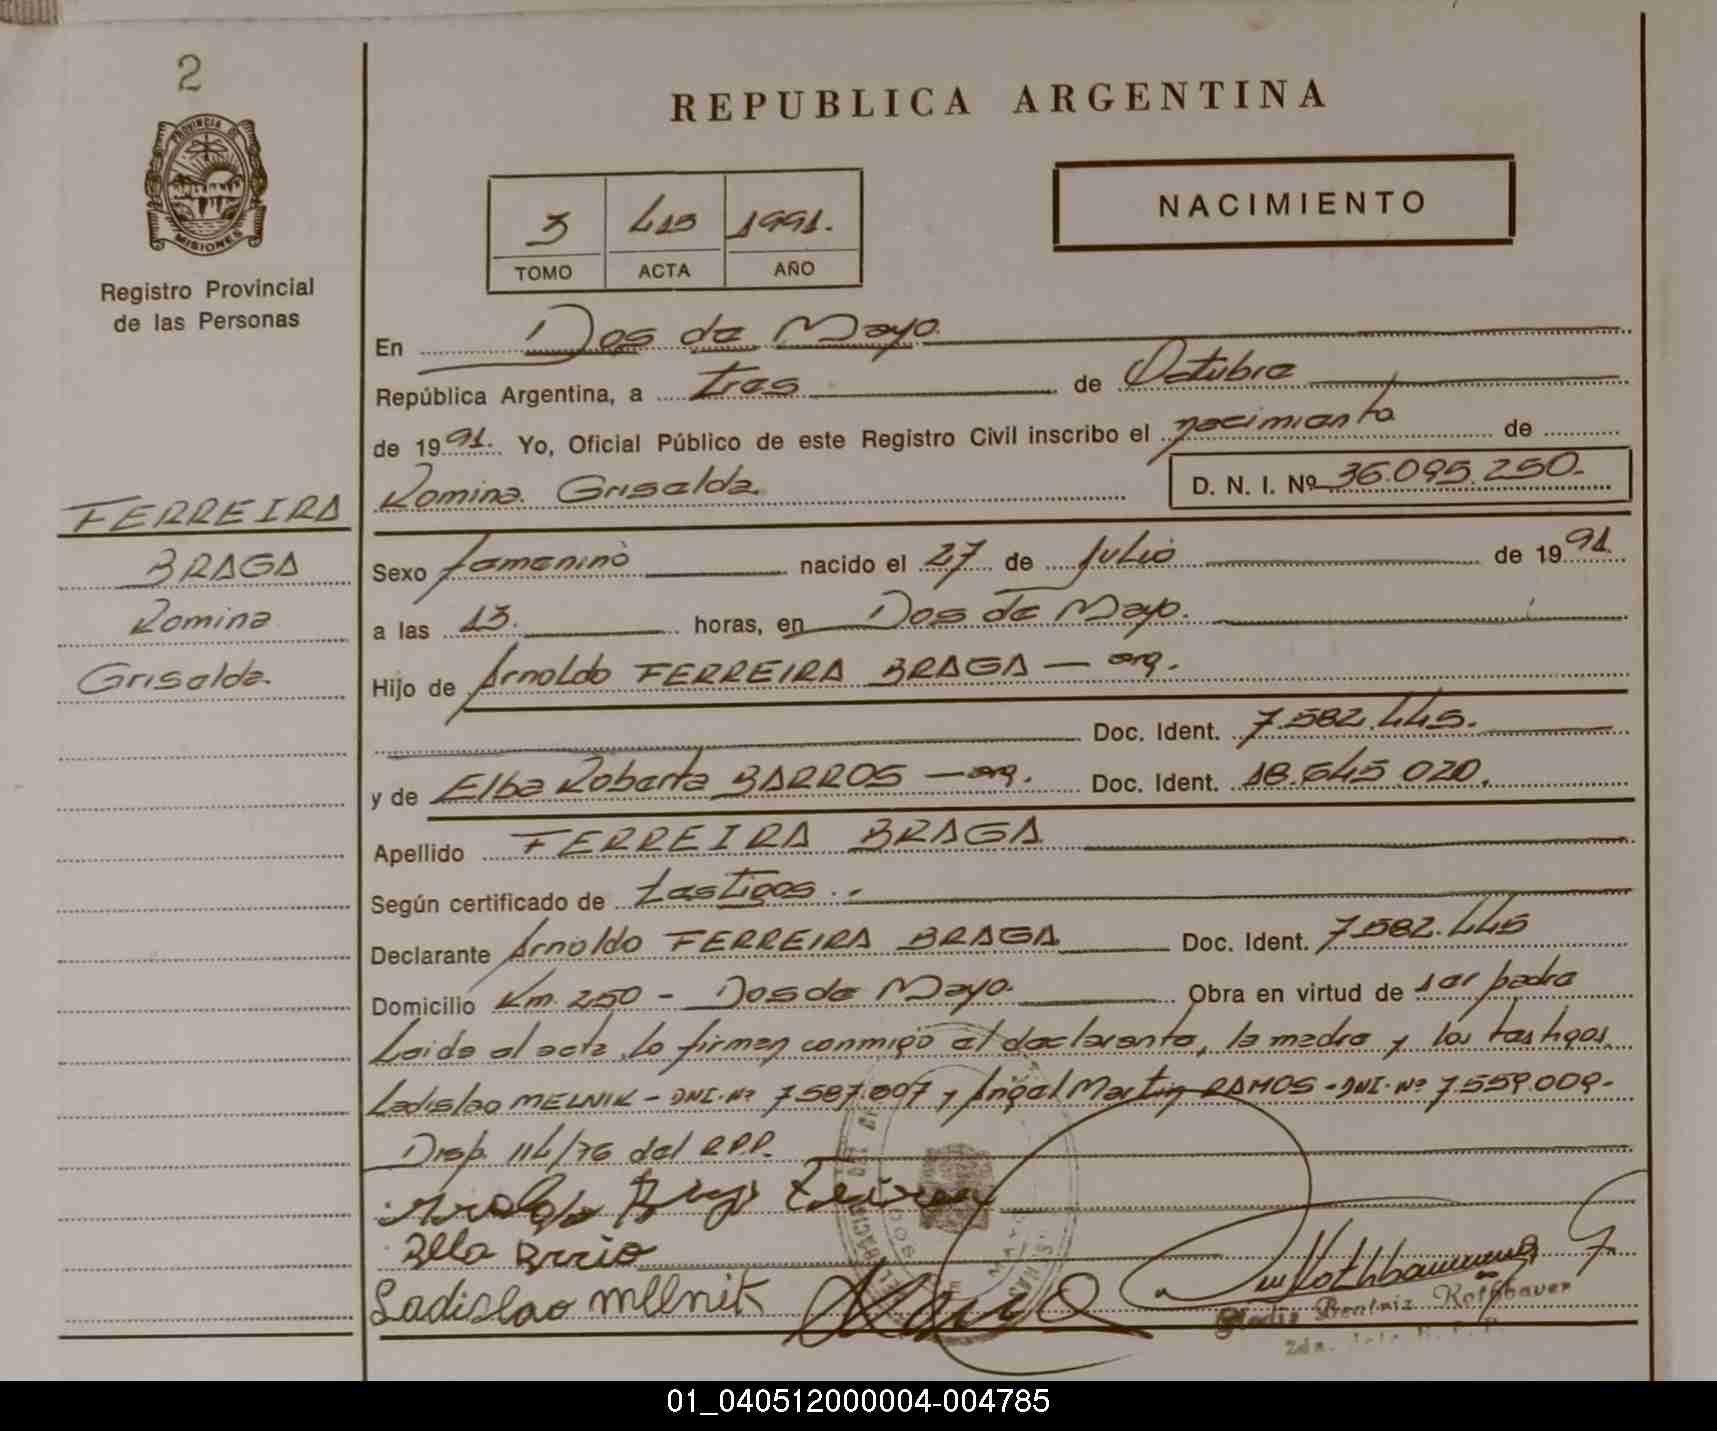 2
REPUBLICA ARGENTINA
PROVINCIA DE
MISIONES
Registro Provincial
de las Personas
3 413 1991.
TOMO ACTA AÑO
NACIMIENTO
En Dos de Mayo
República Argentina, a tres de Octubre
de 1991. Yo, Oficial Público de este Registro Civil inscribo el nacimiento de
Romina Griselda D. N. I. Nº 36.095.250.-
FERREIRA
BRAGA
Romina
Griselda
Sexo femenino nacido el 27 de Julio de 1991
a las 13. horas, en Dos de Mayo.
Hijo de Arnoldo FERREIRA BRAGA - arg.
Doc. Ident. 7.582.445.
y de Elba Roberta BARROS - arg. Doc. Ident. 18.645.020.
Apellido FERREIRA BRAGA
Según certificado de testigos.-
Declarante Arnoldo FERREIRA BRAGA Doc. Ident. 7.582.445
Domicilio Km. 250 - Dos de Mayo. Obra en virtud de ser padre
Leida el acta, lo firman conmigo el declarante, la madre y los testigos
Ladislao MELNIK - DNI. Nº 7.587.007 y Angel Martin RAMOS - DNI. Nº 7.559.009.-
Disp. 114/76 del RPP.
Ladislao mllnik
Gladis Beatriz Rothbauer
01_040512000004-004785